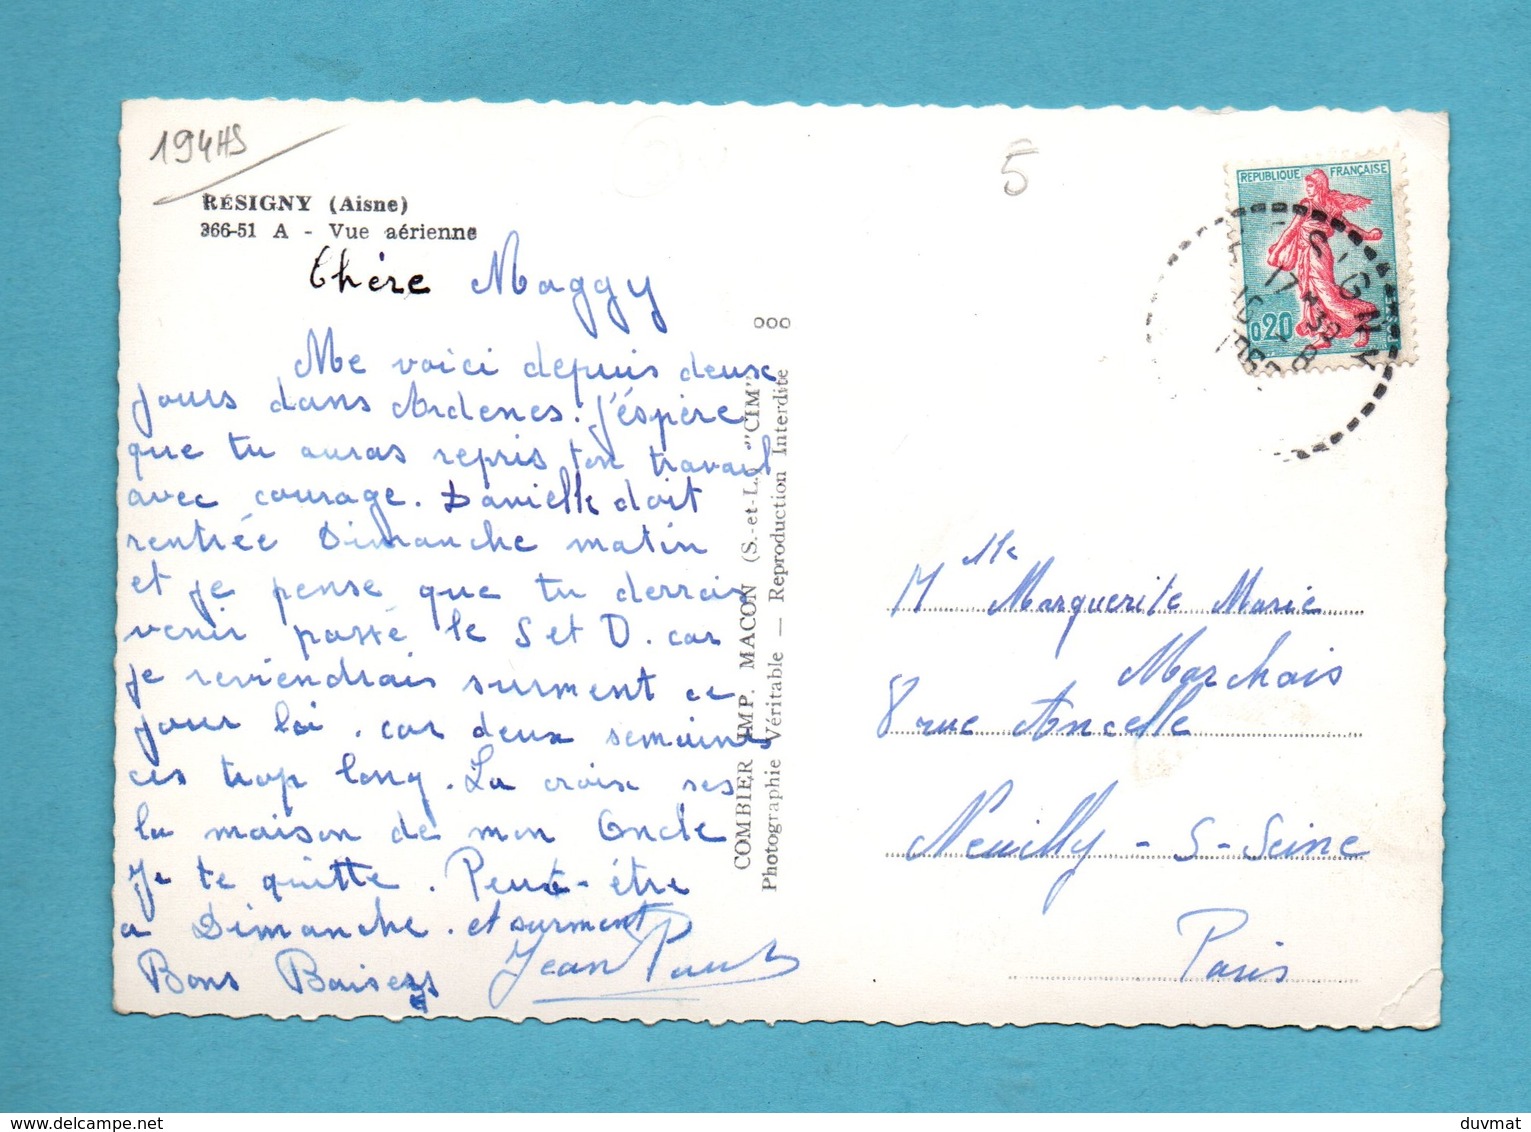 194HS
RÉSIGNY (Aisne)
366-51 A - Vue aérienne
5
REPUBLIQUE FRANÇAISE
0,20
17 * 30
10 - 8
Chère Maggy
Me voici depuis deuxe
jours dans Ardenes. J'éspère
que tu auras repris ton travail
avec courage. Danielle doit
rentrée Dimanche matin
et je pense que tu derrais
venir passé le S et D. car
je reviendrais surment ce
jour loi. car deux semaines
ces trop long. La croix ses
la maison de mon Oncle
Je te quitte. Peut-être
a Dimanche. et surment
Bons Baisers Jean Paul
COMBIER IMP. MACON (S.-et-L.) "CIM"
Photographie Véritable — Reproduction Interdite
Mlle Marguerite Marie
Marchais
8 rue Ancelle
Neuilly - S - Seine
Paris
delcampe.net
duvmat